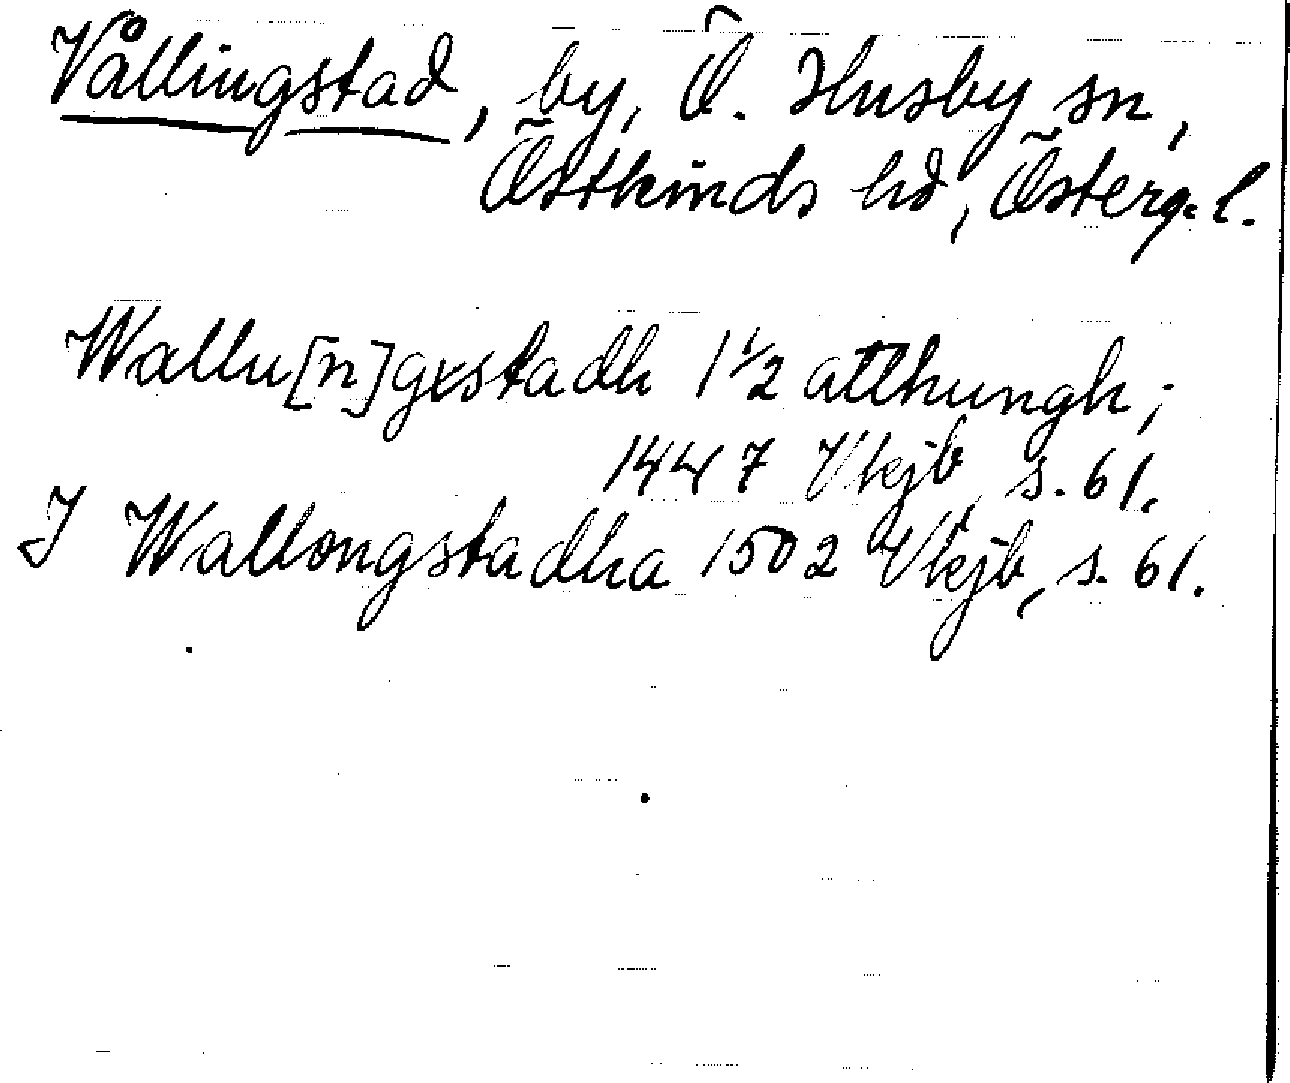 Vållingstad, by, Ö. Husby sn,
Östkinds hd, Österg. l.
Wallu[n]gxstadh 1 1/2 atthungh;
1447 Vkjb, s. 61.
J Wallongstadha 1502 Vkjb, s. 61.